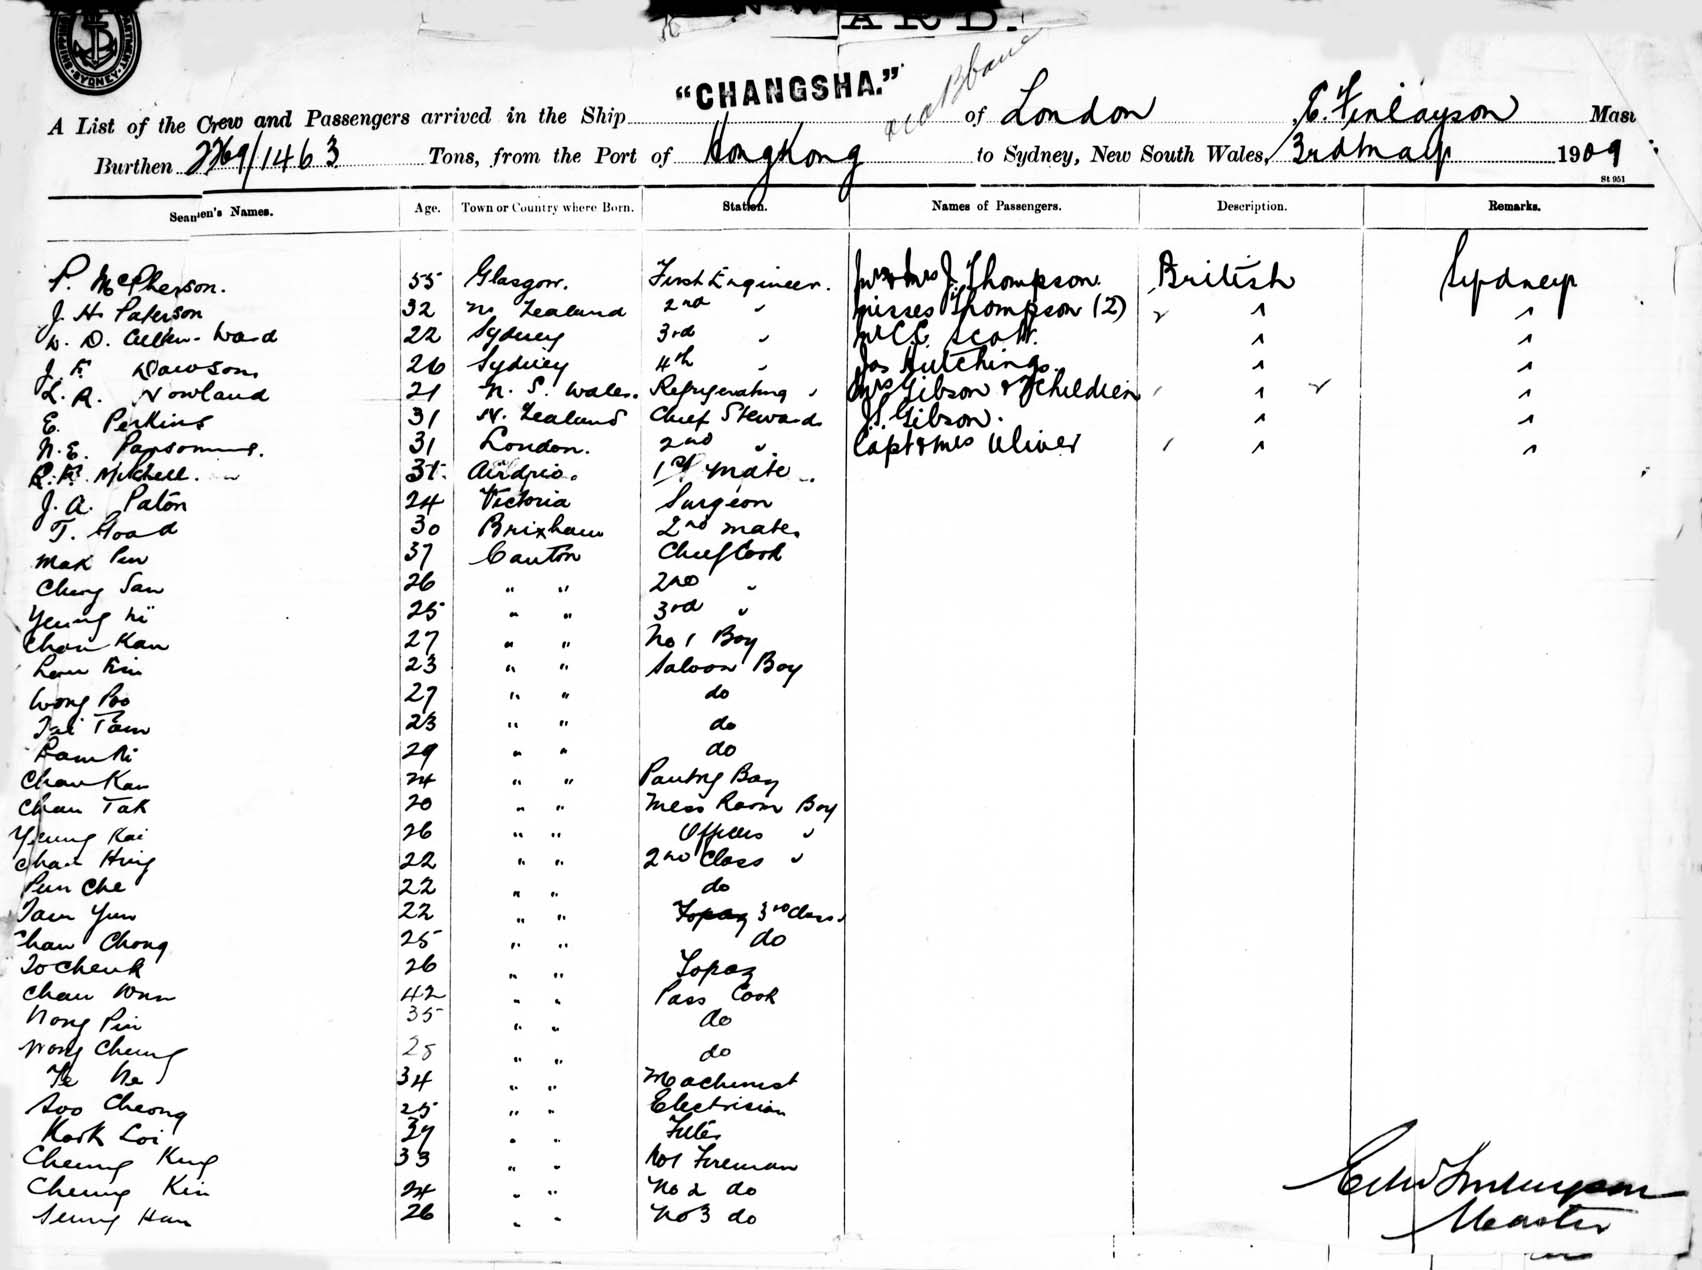 SYDNEY
"CHANGSHA."
A List of the Crew and Passengers arrived in the Ship of London E. Finlayson Mast
Burthen 2269/1463 Tons, from the Port of HongKong to Sydney, New South Wales, 3rd May 1909
St 951
Seamen's Names. Age. Town or Country where Born. Station. Names of Passengers. Description. Remarks.
P. McPherson. 55 Glasgow. First Engineer. Mr & Mrs J. Thompson British Sydney
J. H. Paterson 32 N. Zealand 2nd " Misses Thompson (2) " "
D. Ward 22 Sydney 3rd " Mr C. C. Scott. " "
J. F. Dawson 26 Sydney 4th " Jas Hutchings. " "
L. R. Nowland 21 N. S. Wales. Refrigerating " Mrs Gibson & children " "
E. Perkins 31 N. Zealand Chief Steward J. S. Gibson. " "
N. E. 31 London. 2nd " Capt & Mrs Oliver " "
Mitchell. Airdrie. 1st Mate
J. A. Paton 24 Victoria Surgeon
T. Goad 30 Brixham 2nd Mate.
Mak Pun 37 Canton Chief Cook
Chung San 26 " " 2nd "
Yeung Ki 25 " " 3rd "
Chan Kan 27 " " No 1 Boy
23 " " Saloon Boy
Wong Poo 27 " " do
Tam 23 " " do
29 " " do
Chan Kan 24 " " Pantry Boy
Chan Tak 20 " " Mess Room Boy
Yeung Kai 26 " " Officers "
Chan Hing 22 " " 2nd Class "
Pun Che 22 " " do
Tam Yun 22 " " Topaz 3rd Class
Chan Chong 25 " " do
To Cheuk 26 " " Topaz
Chan Wun 42 " " Pass Cook
Wong Pin 35 " " do
Wong Cheung 25 " " do
34 " " Machinist
Soo Cheong 25 " " Electrician
Kwok Loi " " Fitter
Cheung King 33 " " No 1 Fireman
Cheung Kin 24 " " No 2 do
Seung Han 26 " " No 3 do
Finlayson
Master